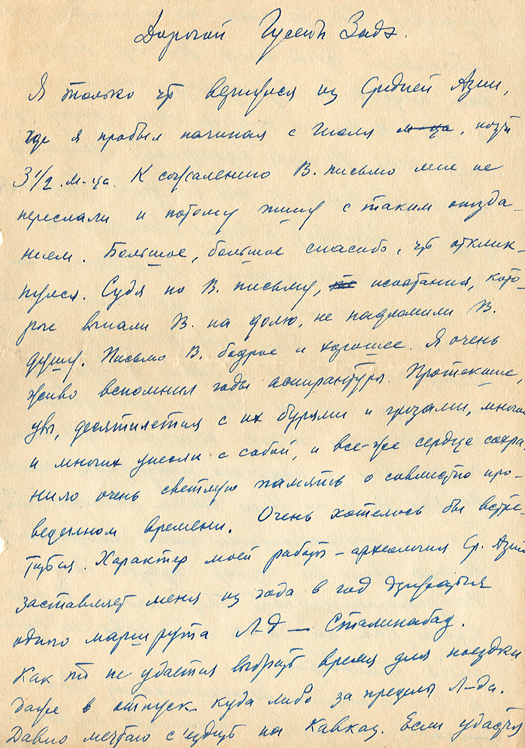 Дорогой Гусейн Заде.
Я только что вернулся из Средней Азии,
где я пробыл начиная с Июля м-ца, почти
3 1/2 м-ца. К сожалению В. письмо мне не
переслали и потому пишу с таким опозда-
нием. Большое, большое спасибо, что отклик-
нулся. Судя по В. письму, испытания, кото-
рые выпали В. на долю, не надломили В.
душу. Письмо В. бодрое и хорошее. Я очень
живо вспомнил годы аспирантуры. Протекшие,
увы, десятилетия с их бурями и грозами, многое
и многих унесли с собой, и все-же сердце сохра-
нило очень светлую память о совместно про-
веденном времени. Очень хотелось бы встре-
титься. Характер моей работы – археология Ср. Азии
заставляет меня из года в год держаться
одного маршрута Л-д – Сталинабад.
Как то не удается выбрать время для поездки
даже в отпуск куда либо за пределы Л-да.
Давно мечтаю съездить на Кавказ. Если удастся